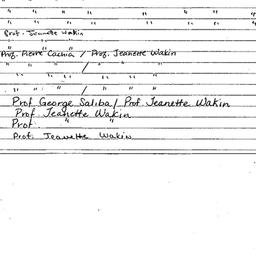 " " " " " " "
" " " " " " "
Prof. Jeanette Wakin
" "
Prof. Pierre Cachia / Prof. Jeanette Wakin
" " " / " " "
" " " " " "
" " " / " " "
Prof George Saliba / Prof. Jeanette Wakin
Prof. Jeanette Wakin
Prof. " "
Prof. Jeanette Wakin